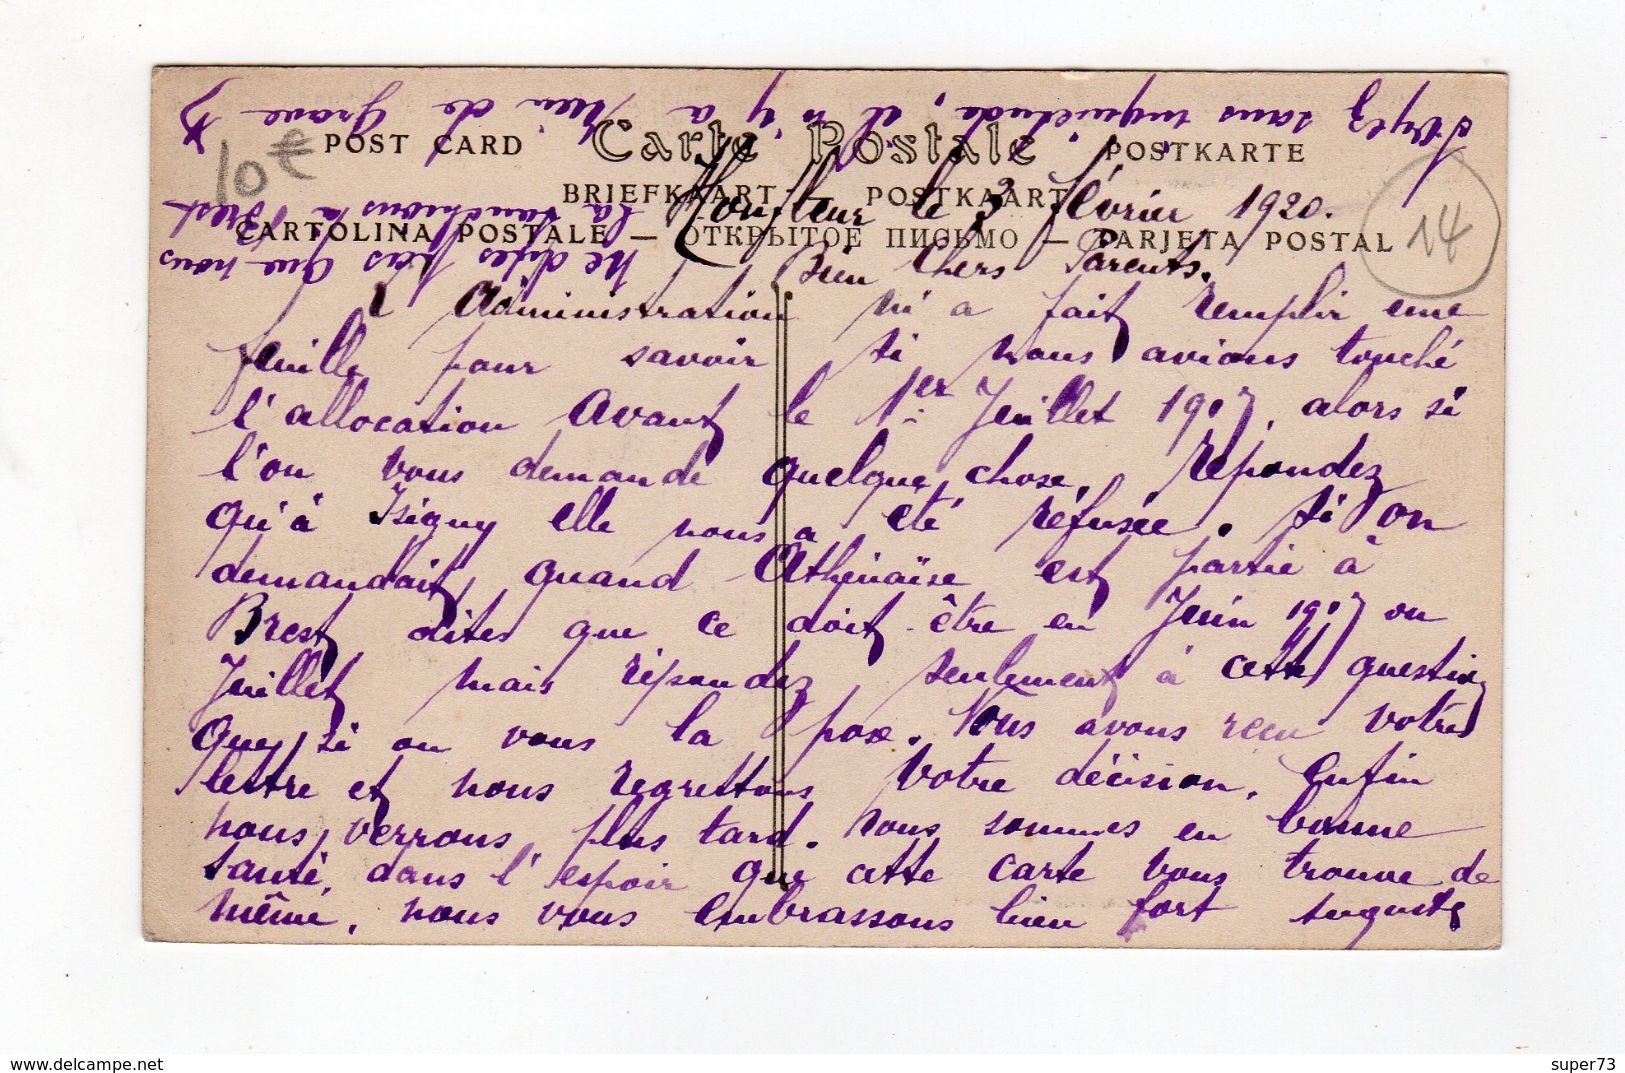 Soyez sans inquiétude, il n'y a rien de grave
ne dites pas que nous
la touchions à
Brest
10€
POST CARD Carte Postale POSTKARTE
BRIEFKAART — POSTKAART
CARTOLINA POSTALE — ОТКРЫТОЕ ПИСЬМО — TARJETA POSTAL
14
Honfleur le 3 février 1920.
Bien Chers Parents.
L'Administration m'a fait remplir une
feuille pour savoir si nous avions touché
l'allocation avant le 1er Juillet 1917, alors si
l'on vous demande quelque chose, répondez
qu'à Isigny elle nous a été réfusée. Si on
demandait quand Athénaïse est partie à
Brest, dites que ce doit être en Juin 1917 ou
Juillet mais répondez seulement à cette question
que si on vous la pose. Nous avons reçu votre
lettre et nous regrettons votre décision. Enfin
nous verrons plus tard. Nous sommes en bonne
santé, dans l'espoir que cette carte vous trouve de
même, nous vous embrassons bien fort Auguste
super73